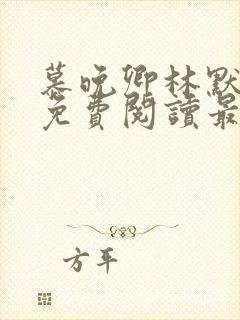 慕晚卿林默
免費閱讀最
方平